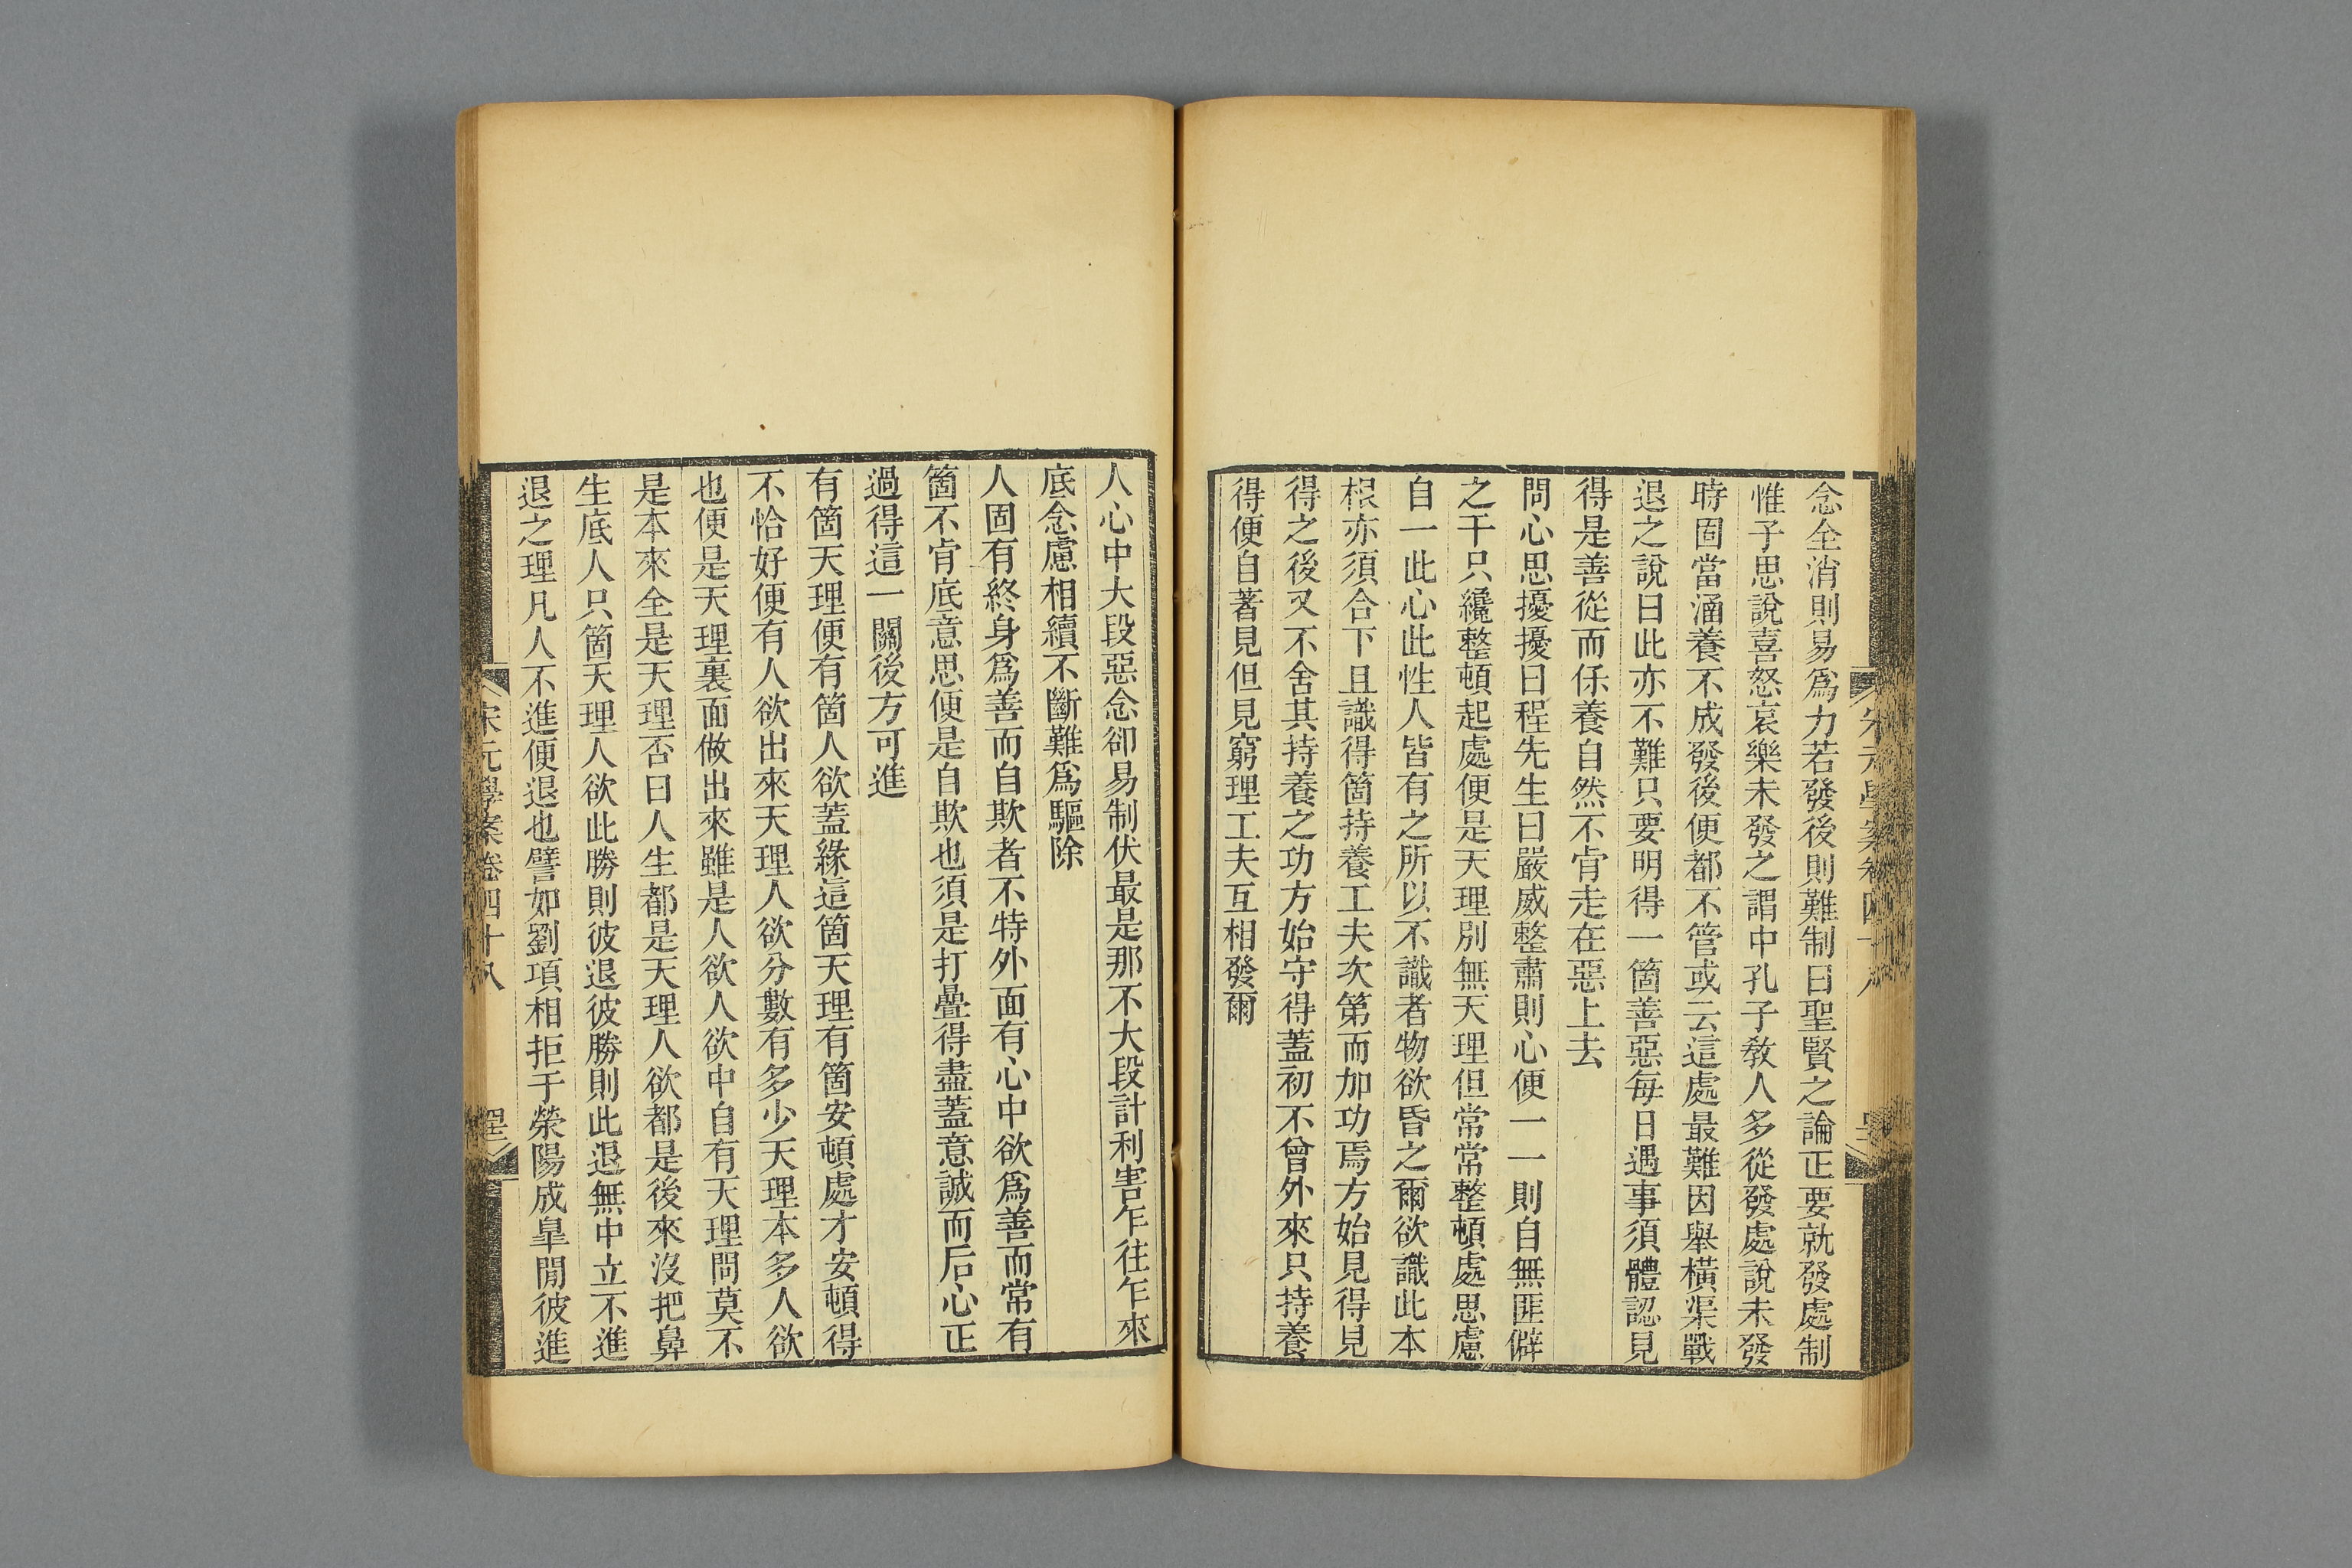 念全消則易爲力若發後則難制曰聖賢之論正要就發處制
惟子思說喜怒哀樂未發之謂中孔子敎人多從發處說未發
時固當涵養不成發後便都不管或云這處最難因舉橫渠戰
退之說曰此亦不難只要明得一箇善惡每日遇事須體認見
得是善從而保養自然不肯走在惡上去
問心思擾擾曰程先生曰嚴威整肅則心便一一則自無匪僻
之干只纔整頓起處便是天理別無天理但常常整頓處思慮
自一此心此性人皆有之所以不識者物欲昏之爾欲識此本
根亦須合下且識得箇持養工夫次第而加功焉方始見得見
得之後又不舍其持養之功方始守得蓋初不曾外來只持養
得便自著見但見窮理工夫互相發爾
人心中大段惡念卻易制伏最是那不大段計利害乍往乍來
底念慮相續不斷難爲驅除
人固有終身爲善而自欺者不特外面有心中欲爲善而常有
箇不肯底意思便是自欺也須是打疊得盡蓋意誠而后心正
過得這一關後方可進
有箇天理便有箇人欲蓋緣這箇天理有箇安頓處才安頓得
不恰好便有人欲出來天理人欲分數有多少天理本多人欲
也便是天理裏面做出來雖是人欲人欲中自有天理問莫不
是本來全是天理否曰人生都是天理人欲都是後來沒把鼻
生底人只箇天理人欲此勝則彼退彼勝則此退無中立不進
退之理凡人不進便退也譬如劉項相拒于滎陽成臯閒彼進
宋元學案卷四十八